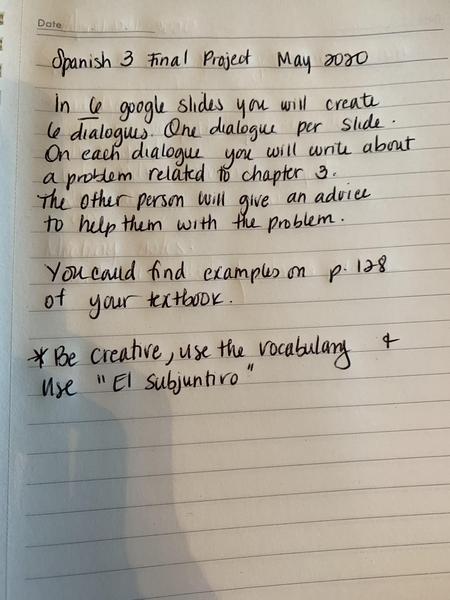 Date
Spanish 3 Final Project May 2020
In 6 google slides you will create
6 dialogues. One dialogue per slide.
On each dialogue you will write about
a problem related to chapter 3.
The other person will give an advice
to help them with the problem.
You could find examples on p. 128
of your textbook.
* Be creative, use the vocabulary &
Use "El subjuntivo"